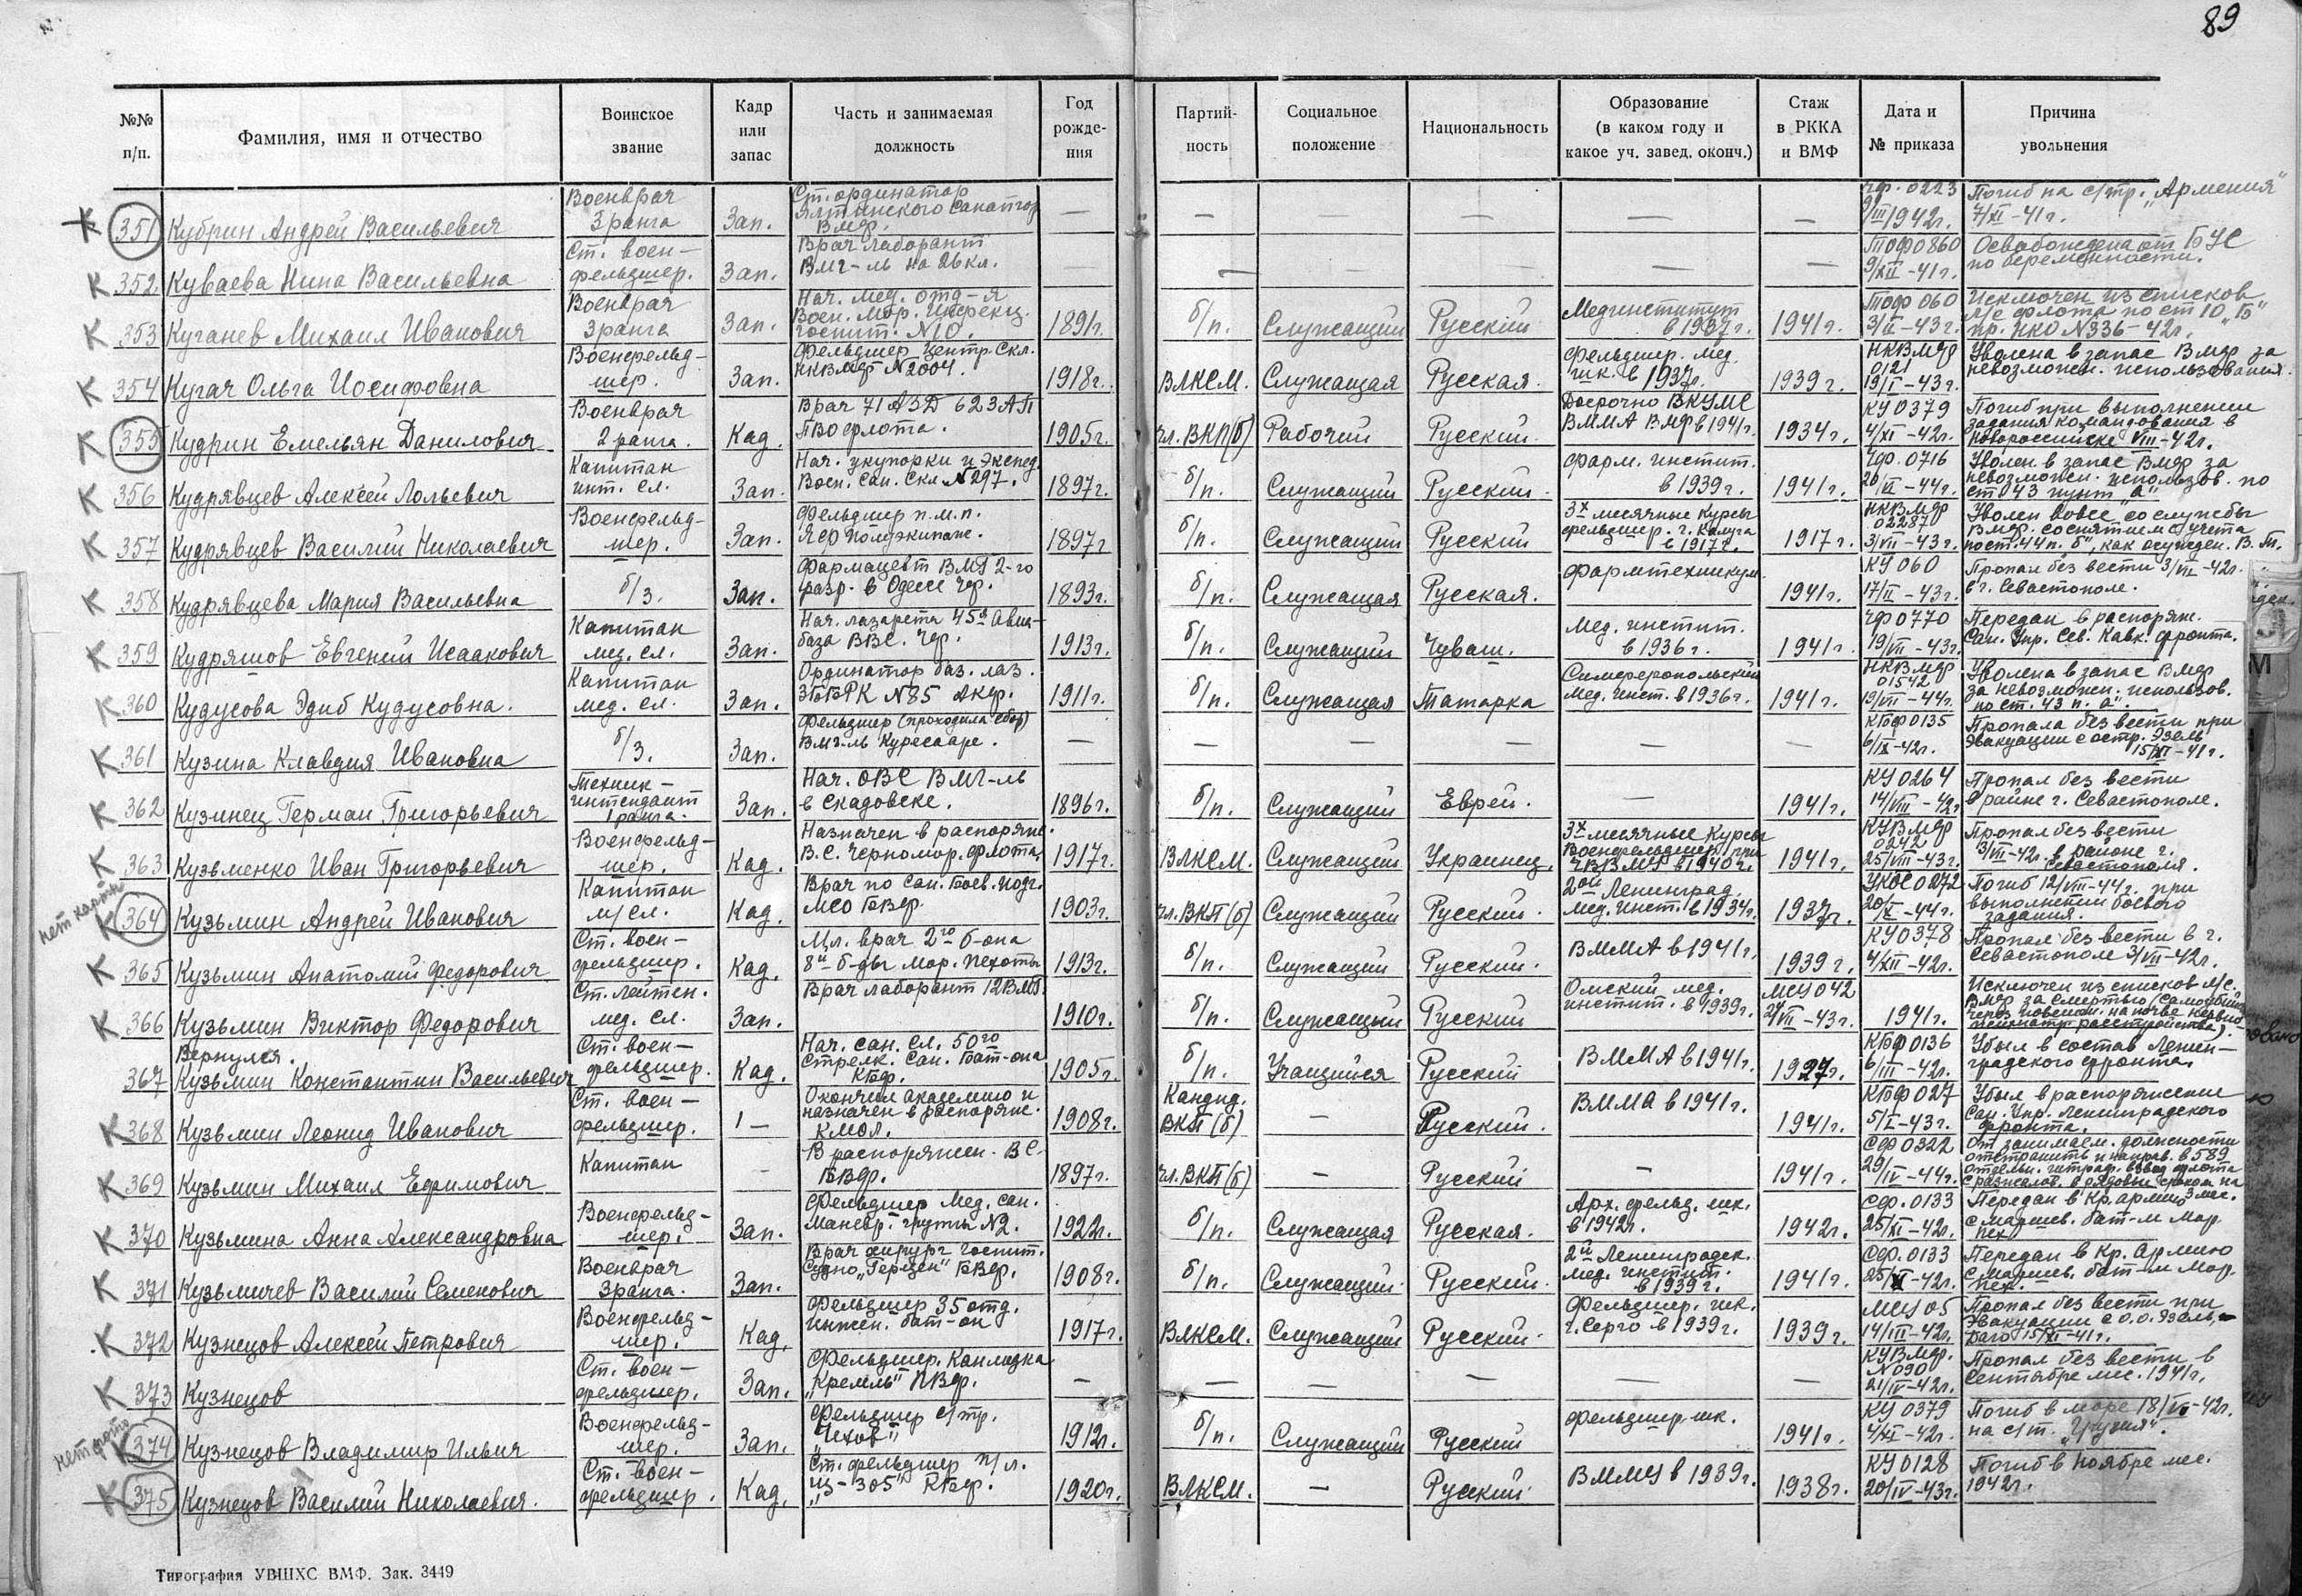 89
№№ п/п.
Фамилия, имя и отчество
Воинское звание
Кадр или запас
Часть и занимаемая должность
Год рожде- ния
Партий- ность
Социальное положение
Национальность
Образование (в каком году и какое уч. завед. оконч.)
Стаж в РККА и ВМФ
Дата и № приказа
Причина увольнения
К 351 Кубрин Андрей Васильевич
Военврач 3 ранга
Зап.
Ст. ординатор Ялтинского санатор ВМФ.
— — — — — —
ЧФ. 0223 9/III 1942г.
Погиб на с/тр. „Армения" 7/XI-41г.
К 352 Куваева Нина Васильевна
Ст. воен- фельдшер.
Зап.
Врач лаборант ВМГ-ль на 26 кл.
— — — — —
ТОФ 0860 9/XII-41г.
Освобождена от БУС по беременности.
К 353 Куганев Михаил Иванович
Военврач 3 ранга
Зап.
Нач. мед. отд-я Воен. Мор. Инфекц. госпит. №10.
1891г.
б/п.
Служащий
Русский
Мединститут в 1937г.
1941г.
ТОФ 060 3/II-43г.
Исключен из списков М/с флота по ст 10 „Б" пр. НКО №336-42г.
К 354 Кугач Ольга Иосифовна
Военфельд- шер.
Зап.
Фельдшер Центр. Скл. НКВМФ №2004.
1918г.
ВЛКСМ.
Служащая
Русская.
Фельдшер. мед. шк. в 1937г.
1939г.
НКВМФ 0121 19/I-43г.
Уволена в запас ВМФ за невозможн. использования.
К 355 Кудрин Емельян Данилович
Военврач 2 ранга.
Кад.
Врач 71 АЗД 623 АП ПВО флота.
1905г.
чл. ВКП(б)
Рабочий
Русский.
Досрочно ВКУМС ВММА ВМФ в 1941г.
1934г.
КУ 0379 4/XI-42г.
Погиб при выполнении задания командования в Новороссийске VIII-42г.
К 356 Кудрявцев Алексей Лольевич
Капитан инт. сл.
Зап.
Нач. укупорки и Экспед. Воен. Сан. Скл №297.
1897г.
б/п.
Служащий
Русский.
Фарм. инстит. в 1939г.
1941г.
ЧФ. 0716 20/VI-44г.
Уволен в запас ВМФ за невозможн. использов. по ст 043 пункт „а"
К 357 Кудрявцев Василий Николаевич
Военфельд- шер.
Зап.
Фельдшер п.м.п. ЯФ полуэкипаж.
1897г
б/п.
Служащий
Русский
3х месячные курсы фельдшер. г. Калуга в 1917г.
1917г.
НКВМФ 02287 3/VII-43г.
Уволен вовсе со службы ВМФ. со снятием с учета по ст. 44 п. „б", как осужден. В. Т.
К 358 Кудрявцева Мария Васильевна
б/з.
Зап.
Фармацевт ВМГ 2-го разр. в Одессе ЧФ.
1893г.
б/п.
Служащая
Русская.
Фармтехникум.
1941г.
КУ 060 17/II-43г.
Пропал без вести 3/VII-42г. в г. Севастополе.
К 359 Кудряшов Евгений Исаакович
Капитан мед. сл.
Зап.
Нач. лазарета 45й Авиа- база ВВС. ЧФ.
1913г.
б/п.
Служащий
Чуваш.
Мед. инстит. в 1936г.
1941г.
ЧФ 0770 19/VII-43г.
Передан в распоряж. Сан. Упр. Сев. Кавк. фронта.
К 360 Кудусова Эдиб Кудусовна.
Капитан мед. сл.
Зап.
Ординатор баз. лаз. ЗББРК №85 АКФ.
1911г.
б/п.
Служащая
Татарка
Симферопольский Мед. Инст. в 1936г.
1941г.
НКВМФ 01542 19/VII-44г.
Уволена в запас ВМФ за невозможн. использов. по ст. 43 п. „а".
К 361 Кузина Клавдия Ивановна
б/з.
Зап.
Фельдшер (проходила сбор) ВМГ-ль Куресааре.
— — — — — —
КБФ 0135 6/IX-42г.
Пропала без вести при Эвакуации с остр. Эзель 15/XI-41г.
К 362 Кузинец Герман Григорьевич
Техник- интендант 1 ранга.
Зап.
Нач. ОВС ВМГ-ль в Скадовске.
1896г.
б/п.
Служащий
Еврей.
—
1941г.
КУ 0264 14/VIII-42г
Пропал без вести в райне г. Севастополе.
К 363 Кузьменко Иван Григорьевич
Военфельд- шер.
Кад.
Назначен в распоряж. В.С. Черномор. флота.
1917г.
ВЛКСМ.
Служащий
Украинец.
3х месячные курсы Военфельдшер. при ЧВВМУ в 1940г.
1941г.
КУВМФ 0242 25/VIII-43г.
Пропал без вести 3/VII-42г. в районе г. Севастополя.
нет карт
К 364 Кузьмин Андрей Иванович
Капитан м/сл.
Кад.
Врач по Сан. Боев. подг. МСО БВФ.
1903г.
чл. ВКП (б)
Служащий
Русский.
2ой Ленинград. Мед. Инст. в 1934г.
1937г.
УКОС 0272 20/X-44г.
Погиб 12/VIII-44г. при выполнении боевого задания.
К 365 Кузьмин Анатолий Федорович
Ст. воен- фельдшер.
Кад.
Мл. врач 2го б-она 8й б-ды Мор. пехоты
1913г.
б/п.
Служащий
Русский.
ВММА в 1941г.
1939г.
КУ 0378 4/XII-42г.
Пропал без вести в г. Севастополе 3/VII-42г.
К 366 Кузьмин Виктор Федорович
Ст. лейтен. мед. сл.
Зап.
Врач лаборант 12 ВМГ.
1910г.
б/п.
Служащий
Русский
Омский мед. инстит. в 1939г.
МСУ 042 24/VII-43г.
1941г.
Исключен из списков М/с. ВМФ за смертью (самоубий. через повешен. на почве нервно психиатр расстройства).
Вернулся.
367 Кузьмин Константин Васильевич
Ст. воен- фельдшер.
Кад.
Нач. сан. сл. 50го Стрелк. Сан. Бат-она КБФ.
1905г.
б/п.
Учащийся
Русский
ВММА в 1941г.
1927г.
КБФ 0136 6/III-42г.
Убыл в состав Ленин- градского фронта.
К 368 Кузьмин Леонид Иванович
Ст. воен- фельдшер.
1 —
Окончил академию и назначен в распоряж. КМОЛ.
1908г.
Кандид. ВКП (б)
—
Русский.
ВММА в 1941г.
1941г.
КБФ 027 5/I-43г.
Убыл в распоряжение Сан. Упр. Ленинградского фронта.
К 369 Кузьмин Михаил Ефимович
Капитан
—
В распоряжен. ВС. БВФ.
1897г.
чл. ВКП (б)
—
Русский
—
1941г.
СФ 0322 29/IV-44г.
От занимаем. должности отстранить и направ. в 589 отдельн. штраф. взвод флота с разжалов. в рядовые сроком на 3 мес.
К 370 Кузьмина Анна Александровна
Военфельд- шер.
Зап.
Фельдшер Мед. сан. Маневр. группы №2.
1922г.
б/п.
Служащая
Русская.
Арх. фельд. шк. в 1942г.
1942г.
СФ. 0133 25/XI-42г.
Передан в Кр. армию с маршев. бат-м Мор. пех.
К 371 Кузьмичев Василий Семенович
Военврач 3 ранга.
Зап.
Врач хирург госпит. Судно „Герцен" БВФ.
1908г.
б/п.
Служащий.
Русский.
2й Ленинградск. мед. институт. в 1939г.
1941г.
СФ. 0133 25/XI-42г.
Передан в Кр. Армию с маршев. бат-м Мор. пех.
К 372 Кузнецов Алексей Петрович
Военфельд- шер.
Кад.
Фельдшер 35 отд. инжен. бат-он
1917г.
ВЛКСМ.
Служащий
Русский.
Фельдшер. шк. г. Серго в 1939г.
1939г.
МСУ 05 14/III-42г.
Пропал без вести при Эвакуации с о.о. Эзель, Даго 15/XI-41г.
К 373 Кузнецов
Ст. воен- фельдшер.
Зап.
Фельдшер. Канлодка „Кремль" ПВФ.
— — — — — —
КУВМФ. №090 21/IV-42г.
Пропал без вести в Сентябре мес. 1941г.
нет фото
К 374 Кузнецов Владимир Ильич
Военфельд- шер.
Зап.
Фельдшер с/тр. „Чехов"
1912г.
б/п.
Служащий
Русский
Фельдшер. шк.
1941г.
КУ 0379 4/XI-42г.
Погиб в море 18/VI-42г. на с/т.
К 375 Кузнецов Василий Николаевич.
Ст. воен- фельдшер.
Кад.
Ст. фельдшер п/л. „Щ-305" КБФ.
1920г.
ВЛКСМ.
—
Русский.
ВММУ в 1939г.
1938г.
КУ 0128 20/IV-43г.
Погиб в Ноябре мес. 1942г.
Типография УВШХС ВМФ. Зак. 3449